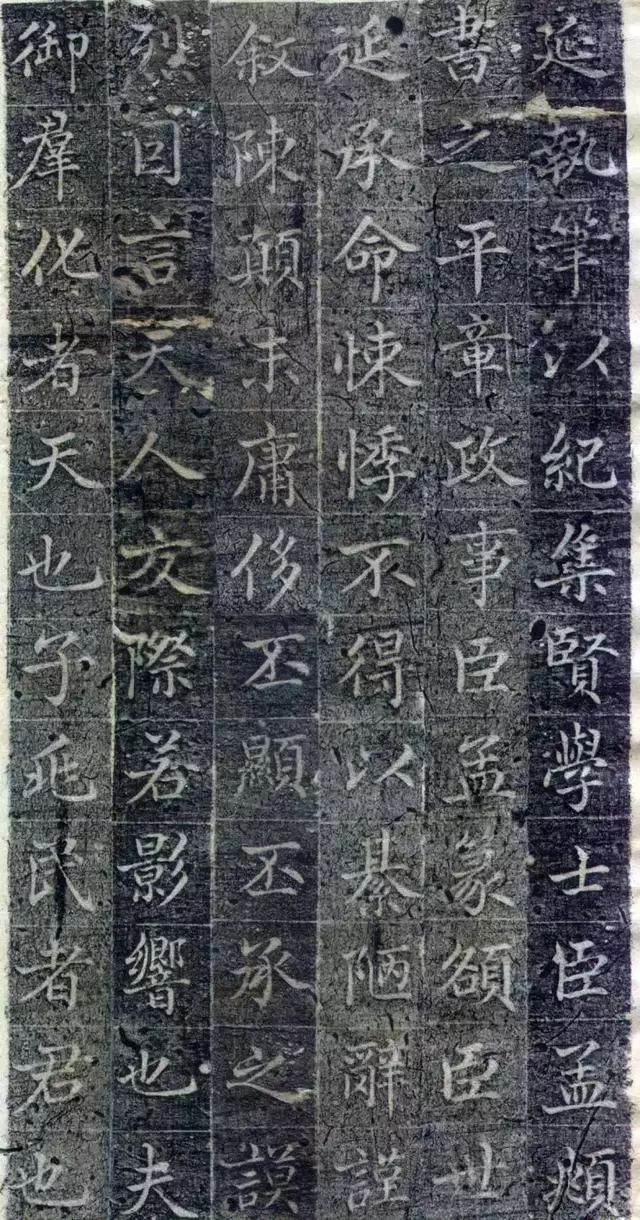 延執筆以紀集賢學士臣孟頫
書之平章政事臣孟篆額臣世
延承命悚悸不得以綦陋辭謹
叙陳顛末庸侈丕顯丕承之謨
烈曰言天人交際若影響也夫
御羣化者天也子兆民者君也